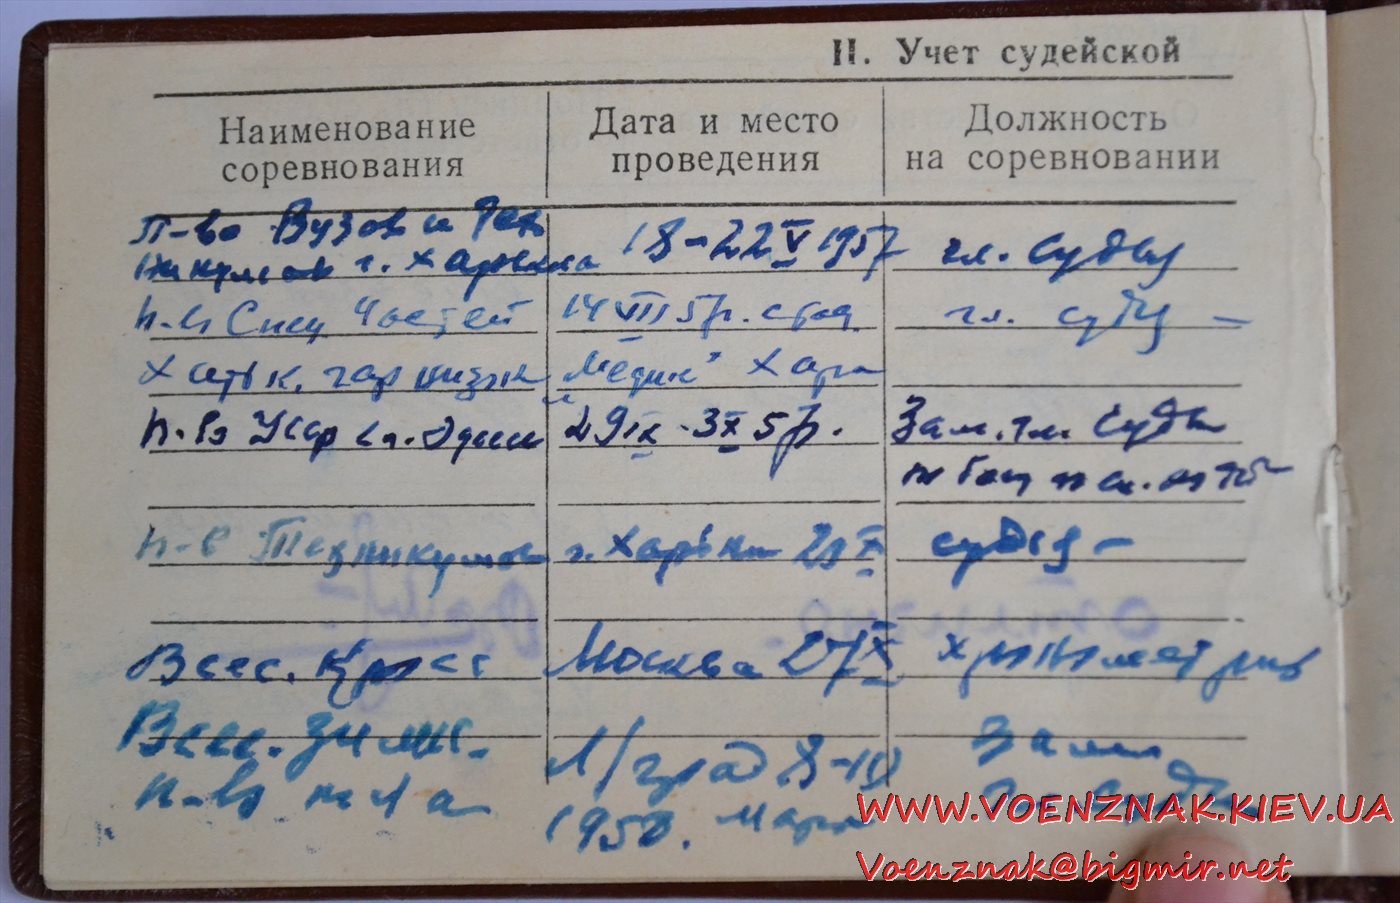 II. Учет судейской
Наименование соревнования
Дата и место проведения
Должность на соревновании
п-во Вузов и Тех
никумов г. Харькова
18-22 V 1957
гл. судья
п-во Спец Частей
14 VII 57г. стад
гл. судья -
Харьк. гарнизон
"Медик" Харьк
п-во Укр
29 IX - 3 X 57г.
Зам. гл. судьи
п-в Техникумов
г. Харьков X
судья -
Всес. Кросс
Москва 27 X
хронометрист
Всес. зимн.
Л/град 8-10
Зам
п-во по л/а
1958. март
гл. судьи
WWW.VOENZNAK.KIEV.UA
Voenznak@bigmir.net